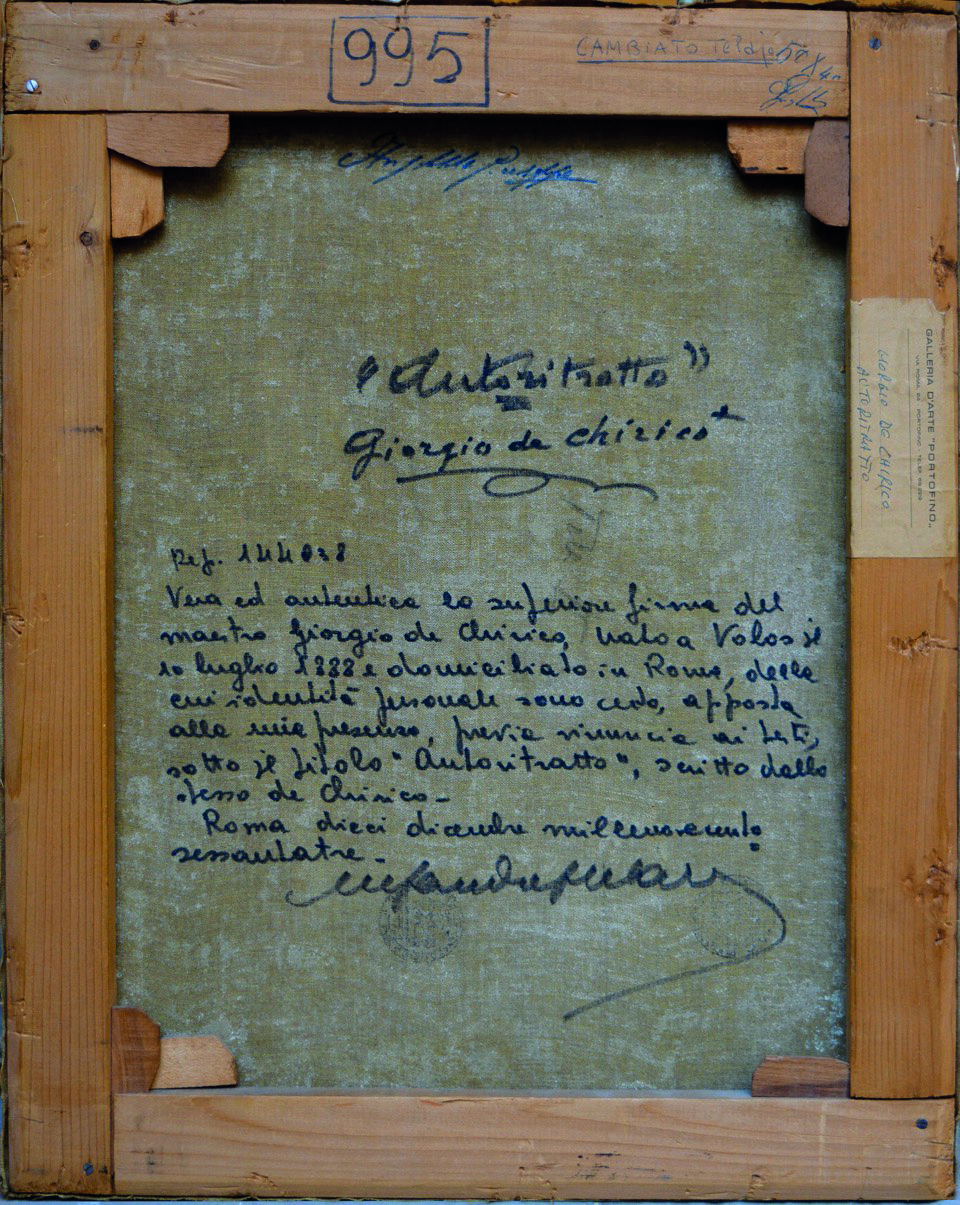 995
CAMBIATO telaio 50 X 40
"Autoritratto"
Giorgio de Chirico
GALLERIA D'ARTE "PORTOFINO"
GIORGIO DE CHIRICO
AUTORITRATTO
Rep. 144038
Vera ed autentica la superiore firma del
maestro Giorgio de Chirico, nato a Volos il
10 luglio 1888 e domiciliato in Roma, della
cui identità personale sono certo, apposta
alla mia presenza, previa rinuncia ai testi,
sotto il titolo "Autoritratto", scritto dallo
stesso de Chirico -
Roma dieci dicembre millenovecento
sessantatre -